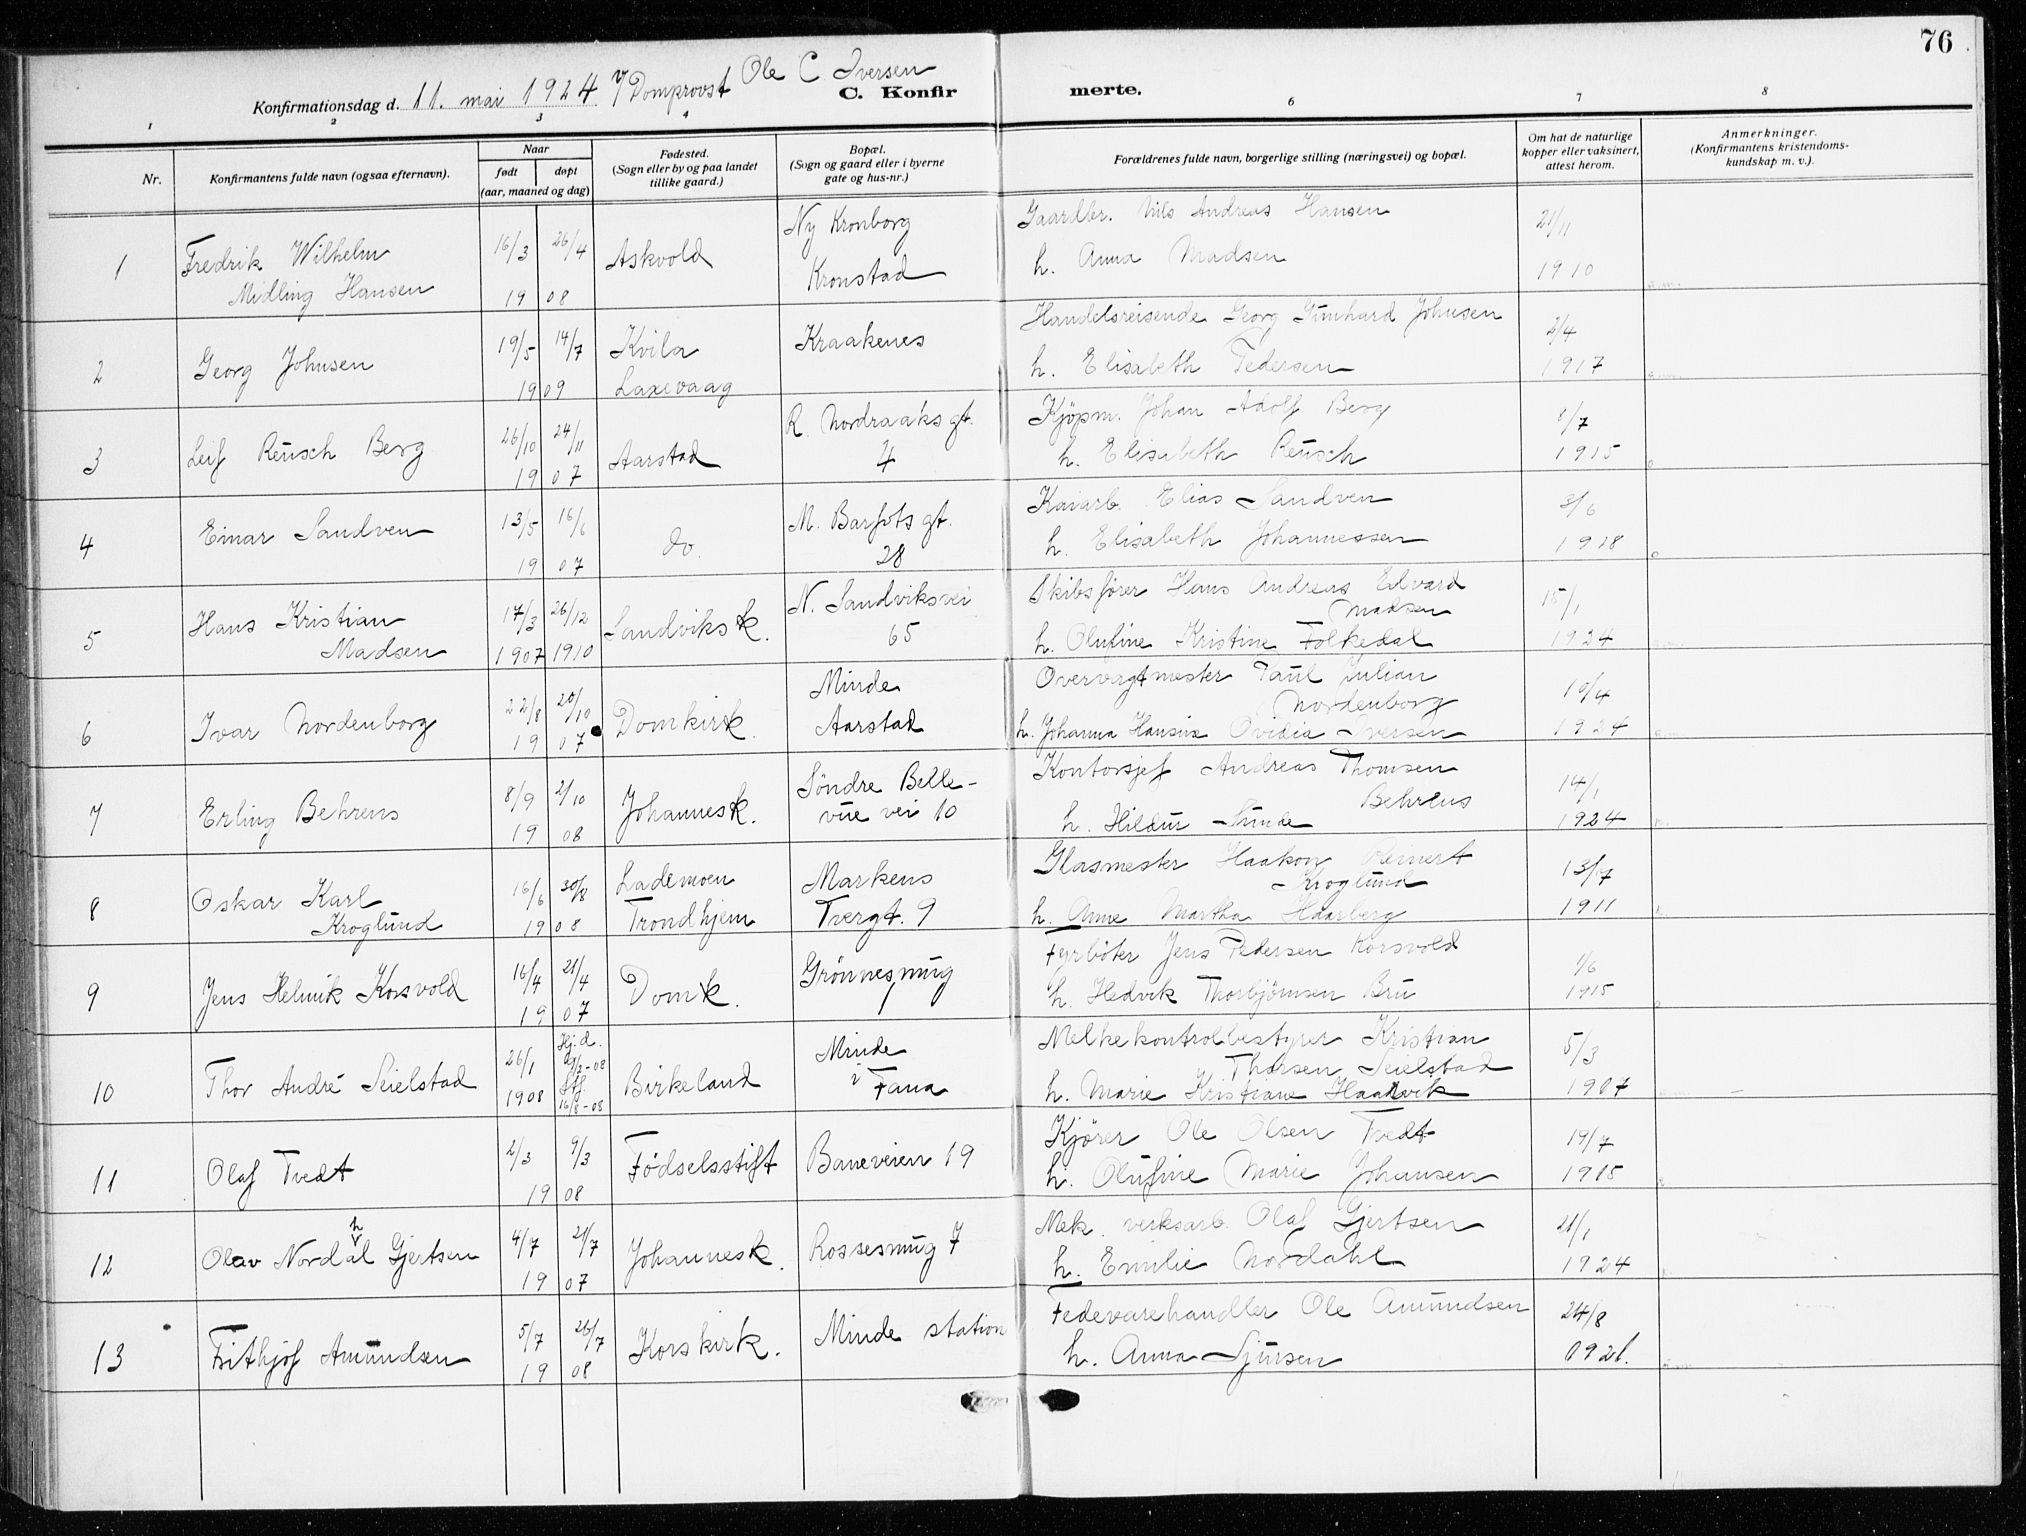 76
Konfirmationsdag d. 11. mai 1924 v/Domprovst Ole C Iversen
C. Konfirmerte.
1 2 3 4 6 7 8
Nr.
Konfirmantens fulde navn (ogsaa efternavn).
Naar
født
døpt
(aar, maaned og dag)
Fødested.
(Sogn eller by og paa landet
tillike gaard.)
Bopæl.
(Sogn og gaard eller i byerne
gate og hus-nr.)
Forældrenes fulde navn, borgerlige stilling (næringsvei) og bopæl.
Om hat de naturlige
kopper eller vaksinert,
attest herom.
Anmerkninger.
(Konfirmantens kristendoms-
kundskap m. v.)
1 Fredrik Wilhelm
Midling Hansen
16/3 26/4
19 08
Askvold
Ny Kronborg
Kronstad
Gaardbr. Nils Andreas Hansen
h. Anna Madsen
21/11
1910
2 Georg Johnsen
19/5 14/7
19 09
Kvila
Laxevaag
Kraakenes
Handelsreisende Georg Gunhard Johnsen
h. Elisabeth Pedersen
2/4
1917
3 Leif Reusch Berg
26/10 24/11
19 07
Aarstad
R. Nordraaks gt.
4
Kjøpm. Johan Adolf Berg
h. Elisabeth Reusch
1/7
1915
4 Einar Sandven
13/5 16/6
19 07
do.
M. Barfots gt.
28
Kaiarb. Elias Sandven
h. Elisabeth Johannessen
3/6
1918
5 Hans Kristian
Madsen
17/3 26/12
1907 1910
Sandviksk.
N. Sandviksvei
65
Skibsfører Hans Andreas Edvard
Madsen
h. Olufine Kristine Folkedal
15/1
1924
6 Ivar Nordenborg
22/8 20/10
19 07
Domkirk.
Minde
Aarstad
Overvagtmester Paul Julian
Nordenborg
h. Johanna Hansine Ovidia Iversen
10/4
1924
7 Erling Behrens
8/9 2/10
19 08
Johannesk.
Söndre Belle-
vue vei 10
Kontorsjef Andreas Thomsen
Behrens
h. Hildur Sunde
14/1
1924
8 Oskar Karl
Kroglund
16/6 30/8
19 08
Lademoen
Trondhjem
Markens
Tvergt. 9
Glasmester Haakon Reinert
Kroglund
h. Anne Martha Haarberg
13/7
1911
9 Jens Helmik Korsvold
16/4 21/4
19 07
Domk.
Grönnesmug
1
Fyrböter Jens Pedersen Korsvold
h. Hedvik Thorbjörnsen Bru
1/6
1915
10 Thor André Seielstad
26/1
1908
Hj.d.
29/2-08
Stf.
16/8-08
Birkeland
Minde
i Fana
Melkekontrolbestyrer Kristian
Thorsen Seielstad
h. Marie Kristiane Haarvik
5/3
1907
11 Olaf Tvedt
2/3 9/3
19 08
Fødselsstift
Baneveien 19
Kjører Ole Olsen Tvedt
h. Olufine Marie Johansen
19/7
1915
12 Olav Nordahl Gjertsen
4/7 21/7
19 07
Johannesk.
Rossesmug 7
Mek. verksarb. Olaf Gjertsen
h. Emilie Nordahl
21/1
1924
13 Frithjof Amundsen
5/7 26/7
19 08
Korskirk.
Minde station
Fedevarehandler Ole Amundsen
h. Anna Sjursen
24/8